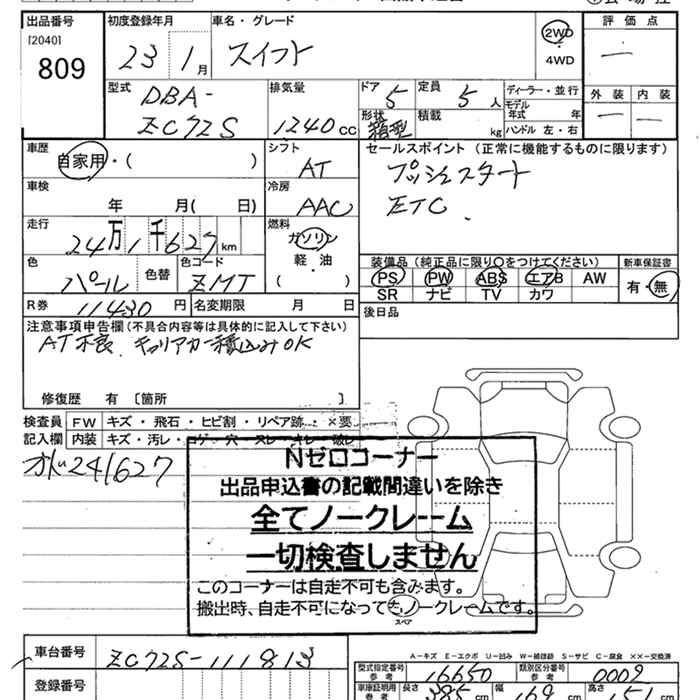 出品番号 初度登録年月 車名・グレード 評価点
[2040] 809 23 1月 スイフト 2WD 4WD 一
外装 内装
一 一
型式 DBA- 排気量 ドア 5 定員 5人 ディーラー・並行
ZC72S 1240cc 形状 箱型 積載 kg モデル年式 年
ハンドル 左・右
車歴 自家用・( ) シフト AT セールスポイント(正常に機能するものに限ります)
プッシュスタート
車検 年 月( 日) 冷房 AAC ETC.
走行 24万1千627km 燃料 ガソリン 軽・油 ( )
色 パール 色替 色コード ZMT
装備品(純正品に限り○をつけてください) 新車保証書
PS PW ABS エアB AW 有・無
SR ナビ TV カワ
R券 11430円 名変期限 月 日 後日品
注意事項申告欄(不具合内容等は具体的に記入して下さい)
AT不良 キャリアカー積込みOK
修復歴 有〔箇所 〕
検査員 FW キズ・飛石・ヒビ割・リペア跡・×要
記入欄 内装 キズ・汚レ・コゲ・穴・スレ・キレ・破レ
241627
Nゼロコーナー
出品申込書の記載間違いを除き
全てノークレーム
一切検査しません
このコーナーは自走不可も含みます。
搬出時、自走不可になってもノークレームです。
スペア
A-キズ E-エクボ U-凹み W-補修跡 S-サビ C-腐食 XX-交換済
車台番号 ZC72S-111813
型式指定番号 参考 16650 類別区分番号 参考 0009
登録番号
車庫証明用 参考 長さ 385cm 幅 169cm 高さ 151cm